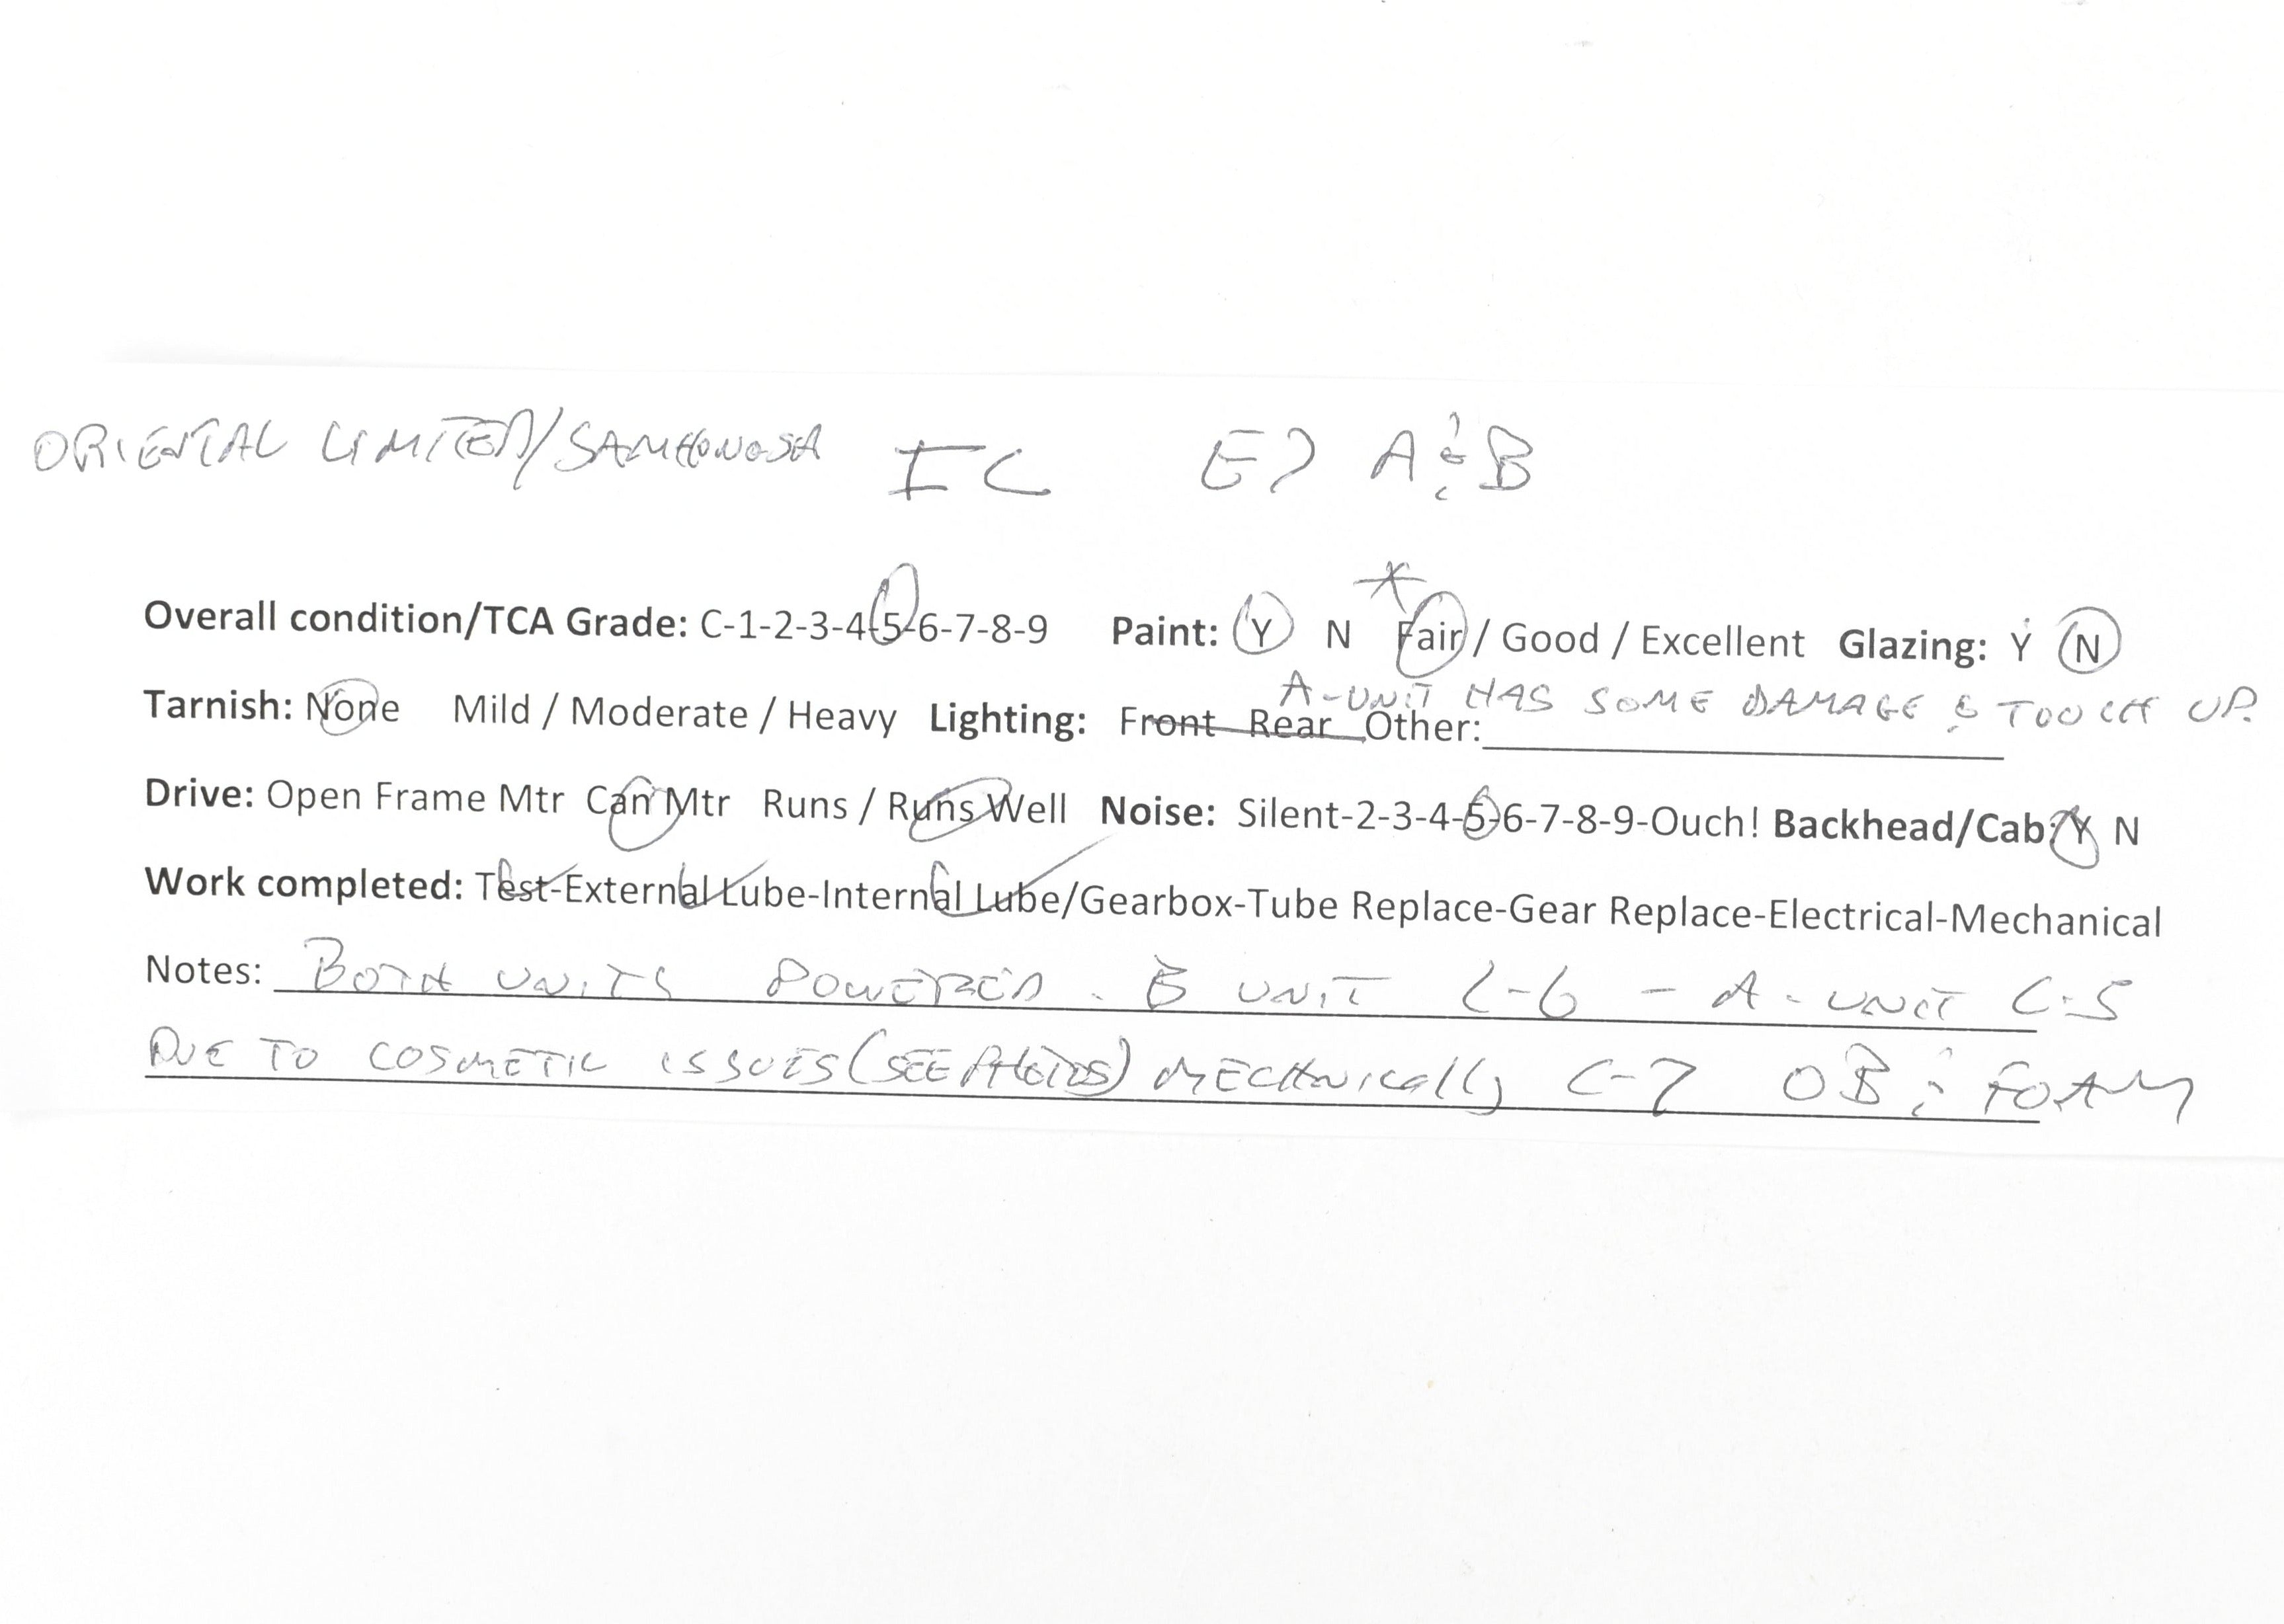 ORIENTAL LIMITED/SAMHONGSA IC E7 A & B
Overall condition/TCA Grade: C-1-2-3-4-5-6-7-8-9 Paint: Y N * Fair / Good / Excellent Glazing: Y N
A-UNIT HAS SOME DAMAGE & TOUCH UP.
Tarnish: None Mild / Moderate / Heavy Lighting: Front Rear Other:
Drive: Open Frame Mtr Can Mtr Runs / Runs Well Noise: Silent-2-3-4-5-6-7-8-9-Ouch! Backhead/Cab: Y N
Work completed: Test-External Lube-Internal Lube/Gearbox-Tube Replace-Gear Replace-Electrical-Mechanical
Notes: BOTH UNITS POWERED. B UNIT C-6 - A-UNIT C-5
DUE TO COSMETIC ISSUES (SEE PHOTOS) MECHANICALLY C-7 OB & FOAM